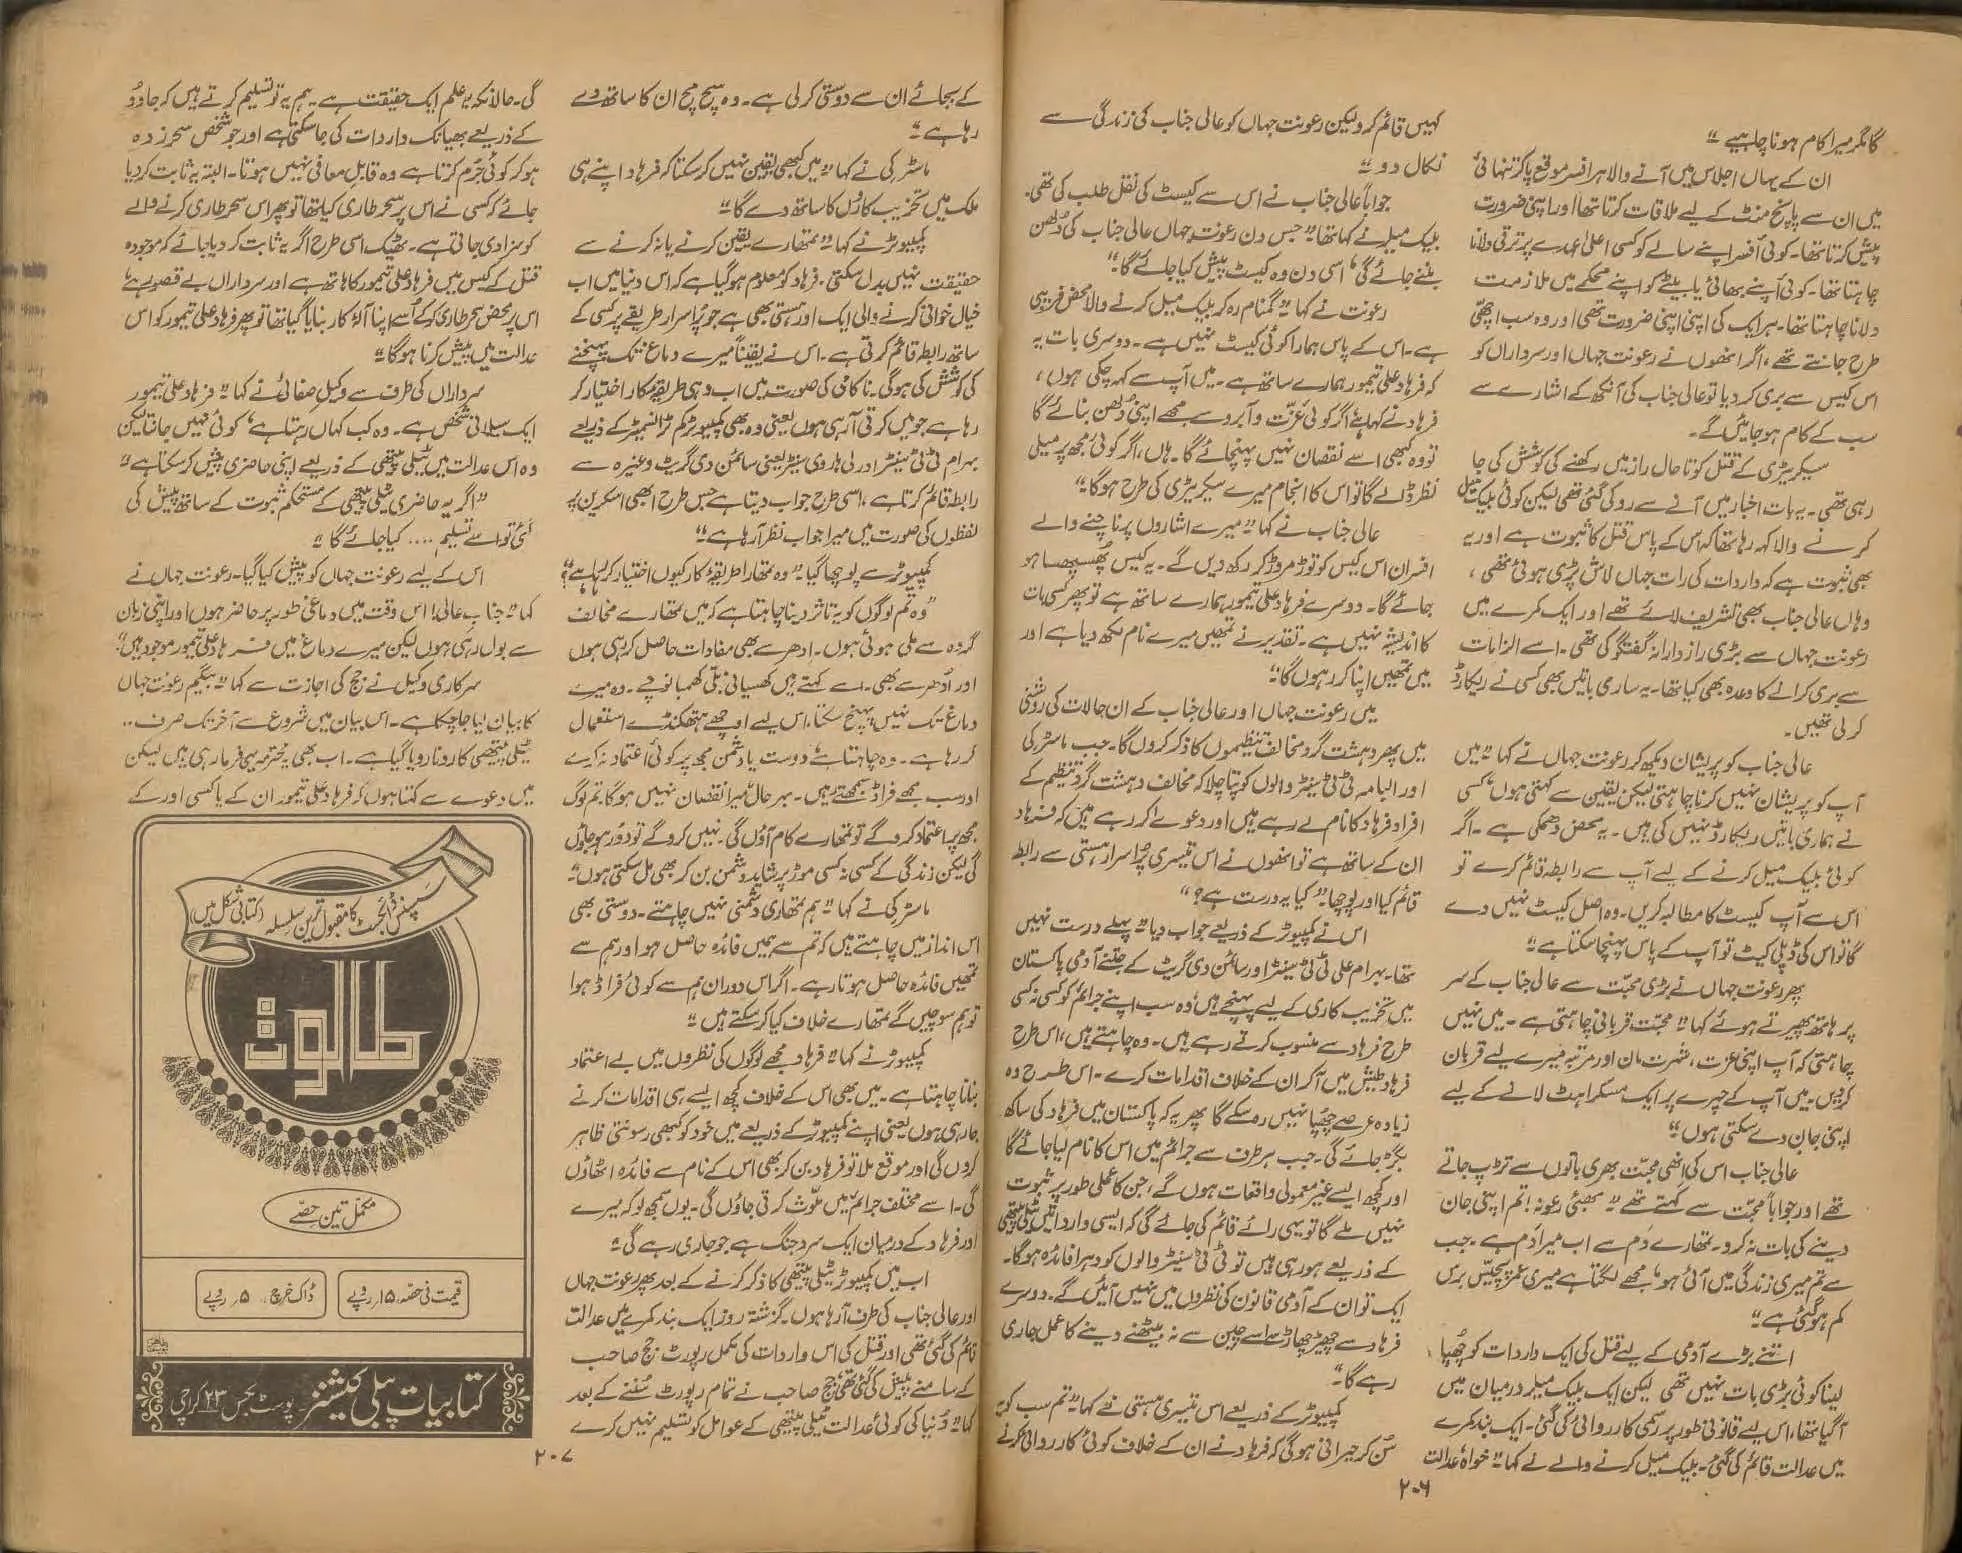 گا مگر میرا کام ہونا چاہیے“
ان کے یہاں اجلاس میں آنے والا ہر افسر موقع پا کر تنہائی
میں ان سے پانچ منٹ کے لیے ملاقات کرتا تھا اور اپنی ضرورت
پیش کرتا تھا۔ کوئی افسر اپنے سالے کو کسی اعلیٰ عہدے پر ترقی دلانا
چاہتا تھا۔ کوئی اپنے بھائی یا بیٹے کو اپنے محکمے میں ملازمت
دلانا چاہتا تھا۔ ہر ایک کی اپنی اپنی ضرورت تھی اور وہ سب اچھی
طرح جانتے تھے، اگر انھوں نے رعونت جہاں اور سرداراں کو
اس کیس سے بری کر دیا تو عالی جناب کی آنکھ کے اشارے سے
سب کے کام ہو جائیں گے۔
سیکریٹری کے قتل کو تا حال راز میں رکھنے کی کوشش کی جا
رہی تھی۔ یہ بات اخبار میں آنے سے روکی گئی تھی لیکن کوئی بلیک میل
کرنے والا کہہ رہا تھا کہ اس کے پاس قتل کا ثبوت ہے اور یہ
بھی ثبوت ہے کہ واردات کی رات جہاں لاش پڑی ہوئی تھی،
وہاں عالی جناب بھی تشریف لائے تھے اور ایک کمرے میں
رعونت جہاں سے بڑی رازدارانہ گفتگو کی تھی۔ اسے الزامات
سے بری کرانے کا وعدہ بھی کیا تھا۔ یہ ساری باتیں بھی کسی نے ریکارڈ
کر لی تھیں۔
عالی جناب کو پریشان دیکھ کر رعونت جہاں نے کہا ”میں
آپ کو پریشان نہیں کرنا چاہتی لیکن یقین سے کہتی ہوں، کسی
نے ہماری باتیں ریکارڈ نہیں کی ہیں۔ یہ محض دھمکی ہے۔ اگر
کوئی بلیک میل کرنے کے لیے آپ سے رابطہ قائم کرے تو
اس سے آپ کیسٹ کا مطالبہ کریں۔ وہ اصل کیسٹ نہیں دے
گا تو اس کی ڈپلی کیٹ تو آپ کے پاس پہنچا سکتا ہے“
پھر رعونت جہاں نے بڑی محبت سے عالی جناب کے سر
پر ہاتھ پھیرتے ہوئے کہا ”محبت قربانی چاہتی ہے۔ میں نہیں
چاہتی کہ آپ اپنی عزت، شہرت، مان اور مرتبہ میرے لیے قربان
کر دیں۔ میں آپ کے چہرے پر ایک مسکراہٹ لانے کے لیے
اپنی جان دے سکتی ہوں“
عالی جناب اس کی انھی محبت بھری باتوں سے تڑپ جاتے
تھے اور جواباً محبت سے کہتے تھے ”بھئی رعونہ! تم اپنی جان
دینے کی بات نہ کرو۔ تمھارے دم سے اب میرا دم ہے۔ جب
سے تم میری زندگی میں آئی ہو، مجھے لگتا ہے میری عمر پچیس برس
کم ہو گئی ہے“
اتنے بڑے آدمی کے لیے قتل کی ایک واردات کو چھپا
لینا کوئی بڑی بات نہیں تھی لیکن ایک بلیک میلر درمیان میں
آ گیا تھا، اس لیے قانونی طور پر رسمی کارروائی کی گئی۔ ایک بند کمرے
میں عدالت قائم کی گئی۔ بلیک میل کرنے والے نے کہا ”خواہ عدالت
کہیں قائم کرو لیکن رعونت جہاں کو عالی جناب کی زندگی سے
نکال دو“
جواباً عالی جناب نے اس سے کیسٹ کی نقل طلب کی تھی۔
بلیک میلر نے کہا تھا ”جس دن رعونت جہاں عالی جناب کی دُلھن
بننے جائے گی، اسی دن وہ کیسٹ پیش کیا جائے گا“
رعونت نے کہا ”گمنام رہ کر بلیک میل کرنے والا محض فریبی
ہے۔ اس کے پاس ہمارا کوئی کیسٹ نہیں ہے۔ دوسری بات یہ
کہ فرہاد علی تیمور ہمارے ساتھ ہے۔ میں آپ سے کہہ چکی ہوں،
فرہاد نے کہا ہے اگر کوئی عزت و آبرو سے مجھے اپنی دُلھن بنائے گا
تو وہ کبھی اسے نقصان نہیں پہنچائے گا۔ ہاں، اگر کوئی مجھ پر میلی
نظر ڈالے گا تو اس کا انجام میرے سیکریٹری کی طرح ہو گا“
عالی جناب نے کہا ”میرے اشاروں پر ناچنے والے
افسران اس کیس کو توڑ مروڑ کر رکھ دیں گے۔ یہ کیس پُھسپُھسا ہو
جائے گا۔ دوسرے فرہاد علی تیمور ہمارے ساتھ ہے تو پھر کسی بات
کا اندیشہ نہیں ہے۔ تقدیر نے تمھیں میرے نام لکھ دیا ہے اور
میں تمھیں اپنا کر رہوں گا“
میں رعونت جہاں اور عالی جناب کے ان حالات کی روشنی
میں پھر دہشت گرد مخالف تنظیموں کا ذکر کروں گا۔ جب ماسٹر کی
اور البامہ ٹی ٹی سینٹر والوں کو پتا چلا کہ مخالف دہشت گرد تنظیم کے
افراد فرہاد کا نام لے رہے ہیں اور دعوے کر رہے ہیں کہ فرہاد
ان کے ساتھ ہے تو انھوں نے اس تیسری پُراسرار ہستی سے رابطہ
قائم کیا اور پوچھا ”کیا یہ درست ہے؟“
اس نے کمپیوٹر کے ذریعے جواب دیا ”پہلے درست نہیں
تھا۔ بہرام علی ٹی ٹی سینٹر اور سائمن دی گریٹ کے جتنے آدمی پاکستان
میں تخریب کاری کے لیے پہنچے ہیں، وہ سب اپنے جرائم کو کسی نہ کسی
طرح فرہاد سے منسوب کرتے رہے ہیں۔ وہ چاہتے ہیں، اس طرح
فرہاد طیش میں آ کر ان کے خلاف اقدامات کرے۔ اس طرح وہ
زیادہ عرصے چھپا نہیں رہ سکے گا پھر یہ کہ پاکستان میں فرہاد کی ساکھ
بگڑ جائے گی۔ جب ہر طرف سے جرائم میں اس کا نام لیا جائے گا
اور کچھ ایسے غیر معمولی واقعات ہوں گے، جن کا عملی طور پر ثبوت
نہیں ملے گا تو یہی رائے قائم کی جائے گی کہ ایسی وارداتیں ٹیلی پیتھی
کے ذریعے ہو رہی ہیں تو ٹی ٹی سینٹر والوں کو دہرا فائدہ ہو گا۔
ایک تو ان کے آدمی قانون کی نظروں میں نہیں آئیں گے۔ دوسرے
فرہاد سے چھیڑ چھاڑ سے اسے چین سے نہ بیٹھنے دینے کا عمل جاری
رہے گا“
کمپیوٹر کے ذریعے اس تیسری ہستی نے کہا ”تم سب کو یہ
سُن کر حیرانی ہو گی کہ فرہاد نے ان کے خلاف کوئی کارروائی کرنے
۲۰۶
کے بجائے ان سے دوستی کر لی ہے۔ وہ سچ مچ ان کا ساتھ دے
رہا ہے“
ماسٹر کی نے کہا ”میں کبھی یقین نہیں کر سکتا کہ فرہاد اپنے ہی
ملک میں تخریب کاروں کا ساتھ دے گا“
کمپیوٹر نے کہا ”تمھارے یقین کرنے یا نہ کرنے سے
حقیقت نہیں بدل سکتی۔ فرہاد کو معلوم ہو گیا ہے کہ اس دنیا میں اب
خیال خوانی کرنے والی ایک اور ہستی بھی ہے جو پُراسرار طریقے پر کسی کے
ساتھ رابطہ قائم کرتی ہے۔ اس نے یقیناً میرے دماغ تک پہنچنے
کی کوشش کی ہو گی۔ ناکامی کی صورت میں اب وہی طریقۂ کار اختیار کر
رہا ہے جو میں کرتی آ رہی ہوں یعنی وہ بھی کمپیوٹر کم ٹرانسمیٹر کے ذریعے
بہرام ٹی ٹی سینٹر اور لی ہاروی سینٹر یعنی سائمن دی گریٹ وغیرہ سے
رابطہ قائم کرتا ہے، اسی طرح جواب دیتا ہے جس طرح ابھی اسکرین پر
لفظوں کی صورت میں میرا جواب نظر آ رہا ہے“
کمپیوٹر سے پوچھا گیا ”وہ تمھارا طریقۂ کار کیوں اختیار کر رہا ہے؟“
”وہ تم لوگوں کو یہ تاثر دینا چاہتا ہے کہ میں تمھارے مخالف
گروہ سے ملی ہوئی ہوں۔ ادھر سے بھی مفادات حاصل کر رہی ہوں
اور اُدھر سے بھی۔ اسے کہتے ہیں کھسیانی بلی کھمبا نوچے۔ وہ میرے
دماغ تک نہیں پہنچ سکتا، اس لیے اوچھے ہتھکنڈے استعمال
کر رہا ہے۔ وہ چاہتا ہے، دوست یا دشمن مجھ پر کوئی اعتماد نہ کرے
اور سب مجھے فراڈ سمجھتے رہیں۔ بہرحال میرا نقصان نہیں ہو گا۔ تم لوگ
مجھ پر اعتماد کرو گے تو تمھارے کام آؤں گی۔ نہیں کرو گے تو دُور ہو جاؤں
گی لیکن زندگی کے کسی نہ کسی موڑ پر شاید دشمن بن کر بھی مل سکتی ہوں“
ماسٹر کی نے کہا ”ہم تمھاری دشمنی نہیں چاہتے۔ دوستی بھی
اس انداز میں چاہتے ہیں کہ تم سے ہمیں فائدہ حاصل ہو اور ہم سے
تمھیں فائدہ حاصل ہوتا رہے۔ اگر اس دوران ہم سے کوئی فراڈ ہوا
تو ہم سوچیں گے تمھارے خلاف کیا کر سکتے ہیں“
کمپیوٹر نے کہا ”فرہاد مجھے لوگوں کی نظروں میں بے اعتماد
بنانا چاہتا ہے۔ میں بھی اس کے خلاف کچھ ایسے ہی اقدامات کرنے
جا رہی ہوں یعنی اپنے کمپیوٹر کے ذریعے میں خود کو کبھی رسونتی ظاہر
کروں گی اور موقع ملا تو فرہاد بن کر بھی اس کے نام سے فائدہ اٹھاؤں
گی۔ اسے مختلف جرائم میں ملوث کرتی جاؤں گی۔ یوں سمجھ لو کہ میرے
اور فرہاد کے درمیان ایک سرد جنگ ہے جو جاری رہے گی“
اب میں کمپیوٹر ٹیلی پیتھی کا ذکر کرنے کے بعد پھر رعونت جہاں
اور عالی جناب کی طرف آ رہا ہوں۔ گزشتہ روز ایک بند کمرے میں عدالت
قائم کی گئی تھی اور قتل کی اس واردات کی مکمل رپورٹ جج صاحب
کے سامنے پیش کی گئی تھی۔ جج صاحب نے تمام رپورٹ سُننے کے بعد
کہا ”دُنیا کی کوئی عدالت ٹیلی پیتھی کے عوامل کو تسلیم نہیں کرے
گی۔ حالانکہ یہ علم ایک حقیقت ہے۔ ہم یہ تو تسلیم کرتے ہیں کہ جادو
کے ذریعے بھیانک واردات کی جا سکتی ہے اور جو شخص سحر زدہ
ہو کر کوئی جُرم کرتا ہے وہ قابلِ معافی نہیں ہوتا۔ البتہ یہ ثابت کر دیا
جائے کہ کسی نے اس پر سحر طاری کیا تھا تو پھر اس سحر طاری کرنے والے
کو سزا دی جاتی ہے۔ ٹھیک اسی طرح اگر یہ ثابت کر دیا جائے کہ موجودہ
قتل کے کیس میں فرہاد علی تیمور کا ہاتھ ہے اور سرداراں بے قصور ہے،
اس پر محض سحر طاری کر کے اُسے اپنا آلۂ کار بنایا گیا تھا تو پھر فرہاد علی تیمور کو اس
عدالت میں پیش کرنا ہو گا“
سرداراں کی طرف سے وکیلِ صفائی نے کہا ”فرہاد علی تیمور
ایک سیلانی شخص ہے۔ وہ کب کہاں رہتا ہے، کوئی نہیں جانتا لیکن
وہ اس عدالت میں ٹیلی پیتھی کے ذریعے اپنی حاضری پیش کر سکتا ہے“
”اگر یہ حاضری ٹیلی پیتھی کے مستحکم ثبوت کے ساتھ پیش کی
گئی تو اسے تسلیم .... کیا جائے گا“
اس کے لیے رعونت جہاں کو پیش کیا گیا۔ رعونت جہاں نے
کہا ”جنابِ عالی! اس وقت میں دماغی طور پر حاضر ہوں اور اپنی زبان
سے بول رہی ہوں لیکن میرے دماغ میں فرہاد علی تیمور موجود ہیں“
سرکاری وکیل نے جج کی اجازت سے کہا ”بیگم رعونت جہاں
کا بیان لیا جا چکا ہے۔ اس بیان میں شروع سے آخر تک صرف ..
ٹیلی پیتھی کا رونا رویا گیا ہے۔ اب بھی یہ محترمہ یہی فرما رہی ہیں لیکن
میں دعوے سے کہتا ہوں کہ فرہاد علی تیمور ان کے یا کسی اور کے
سسپنس ڈائجسٹ
کا مقبول ترین سلسلہ (کتابی شکل میں)
طالوت
مکمل تین حصّے
قیمت فی حصّہ ۱۵/ روپے
ڈاک خرچ ۵/ روپے
کتابیات پبلی کیشنز۔ پوسٹ بکس ۲۳ کراچی
۲۰۷